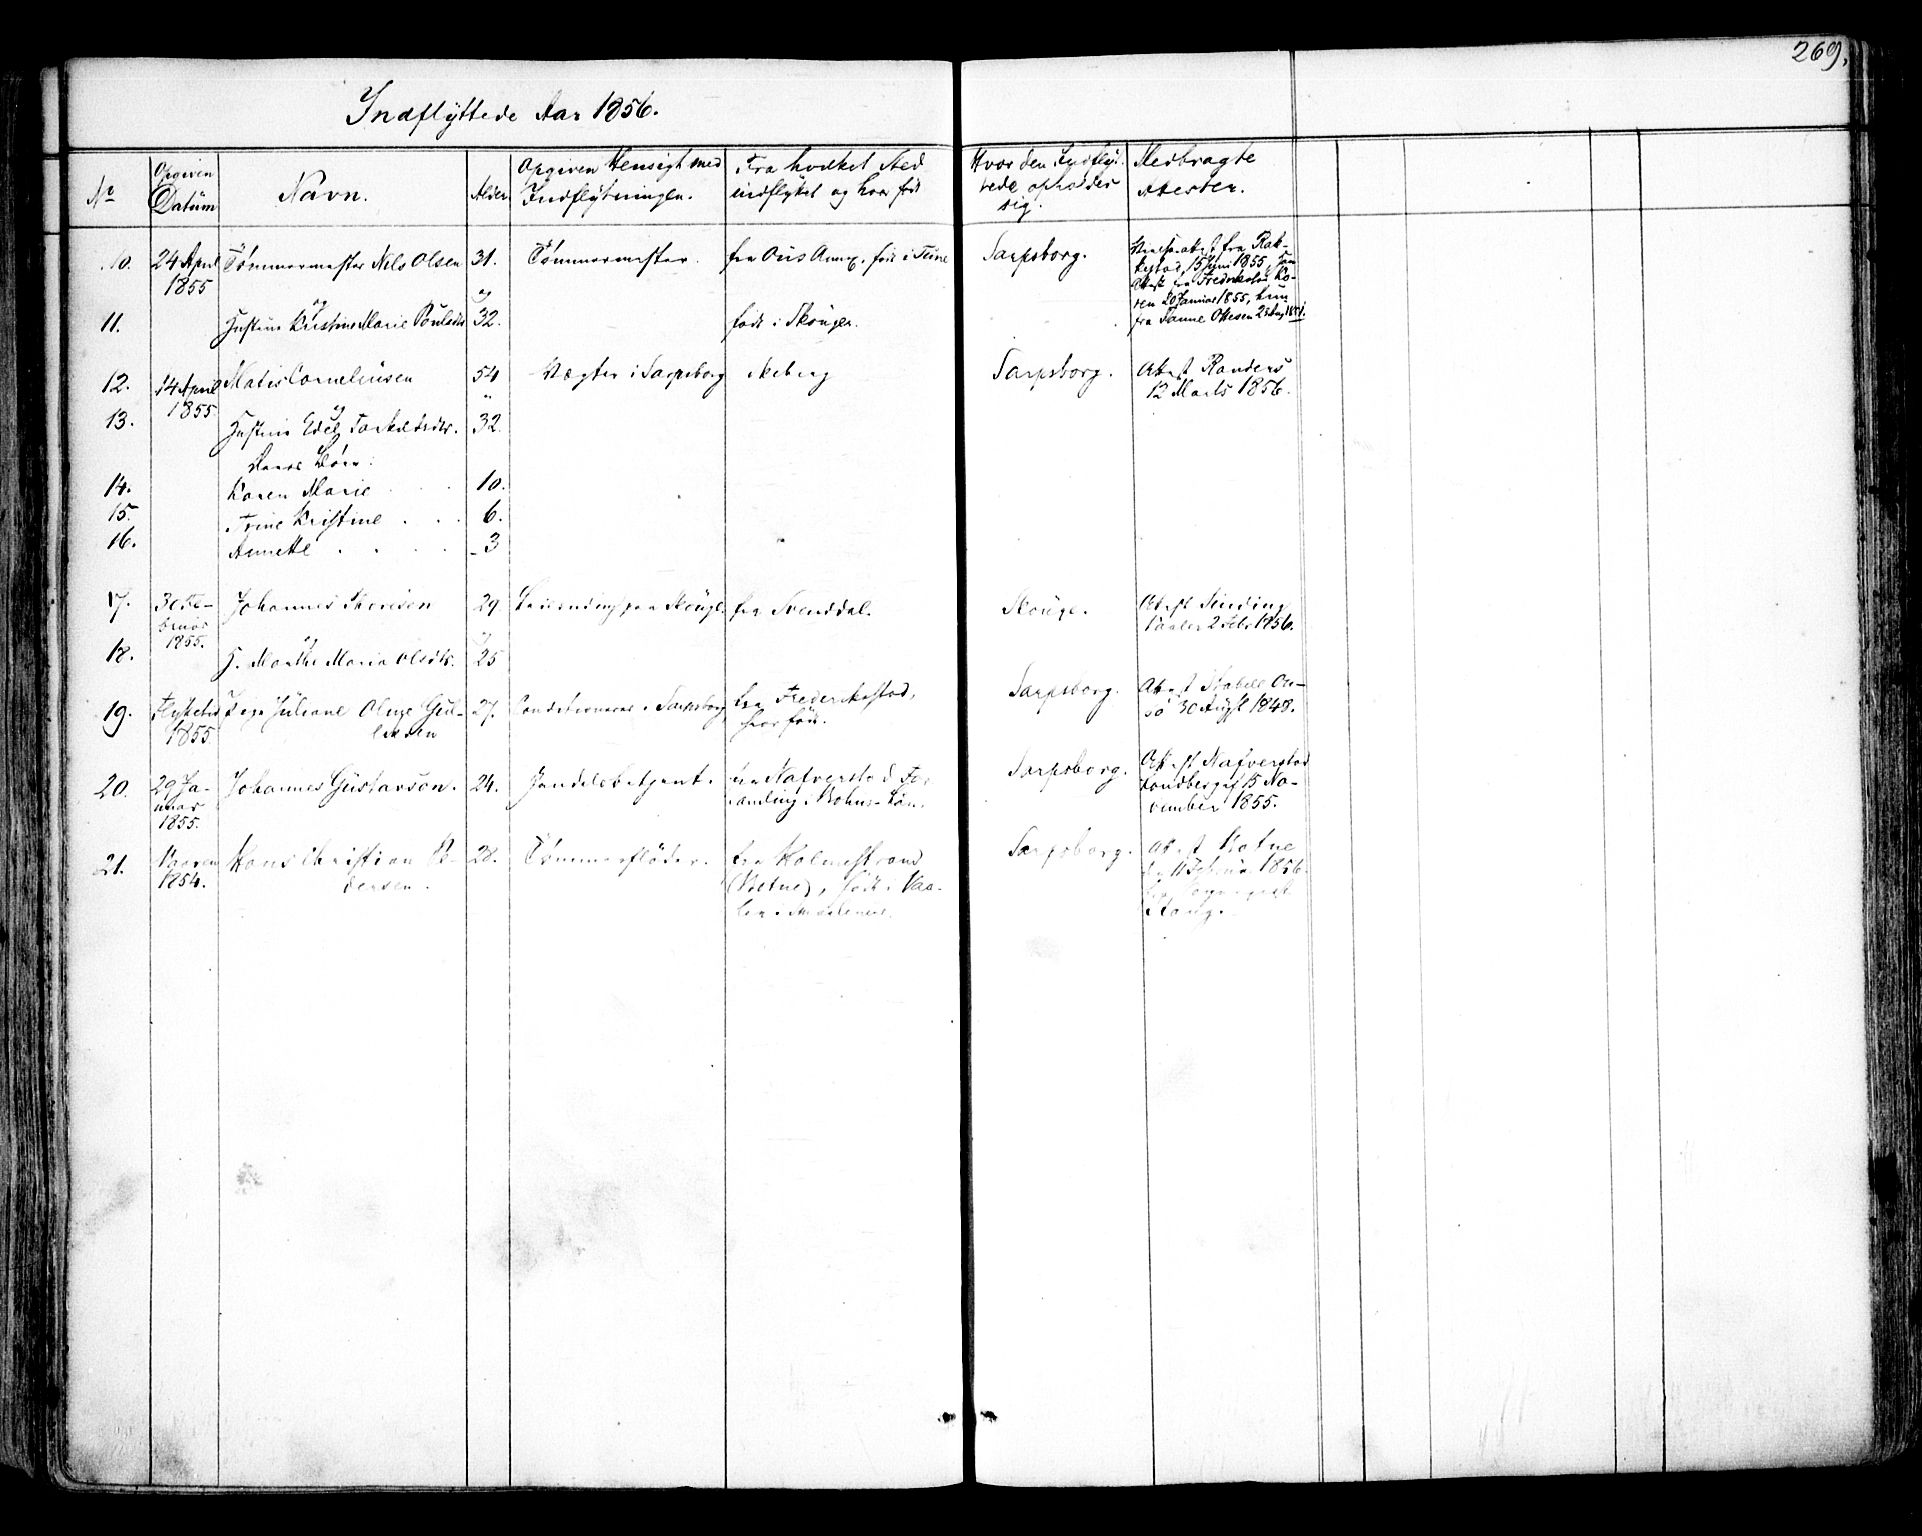 269.
Indflÿttede Aar 1856.
No
Opgiven Datŭm
Navn.
Alder
Opgiven Hensigt med Indflÿtningen.
Fra hvilket Sted indflÿttet og hvor født
Hvor den Indflÿttede opholder sig.
Medbragte Attester.
10. 24 April 1855 Tømmermester Nils Olsen 31. Tømmermester. fra Ous Annex, født i Tune Sarpsborg.
fra Rakkestad, 15 Juni 1855,
20 Januar 1855,
fra Sanne Ottesen
og og
11. Hustru Kristine Marie Poulsdtr 32. født i Skouger.
12. 14 April 1855 Matis Corneliusen 54 Vægter i Sarpsborg Sarpsborg. Attest Randers
12 Marts 1856.
og "
13. Hustru Edel 32.
Deres Børn:
14. Karen Marie 10.
15. Trine Kristine 6.
16. Annette 3
17. 30 Februar 1855. Johannes Thoresen 29 fra Svenddal. Skouge. Attest Sinding
Vaaler 2 Febr 1856.
og
18. H. Marthe Maria Olsdtr. 25
19. 1855 Pige Juliane Oline Gul-
liksen 27. Conditionerer i Sarpsborg fra Frederikstad,
hvor født. Sarpsborg. Attest Stabell On-
sø 30 Augst 1848.
20. 29 Ja-
nuar
1855. Johannes Gŭstavson. 24. Handelsbetjent. fra Nafverstad For-
samling i Bohus-Län. Sarpsborg. Attest Nafverstad
Lundberg 15 No-
vember 1855.
21. Vaaren
1854. Hans Christian Pe-
dersen. 28. Tømmerfløder. fra Holmestrand
(Botne), født i Vaa-
ler i Smaalenene. Sarpsborg. Attest Botne
11 Februar 1856.